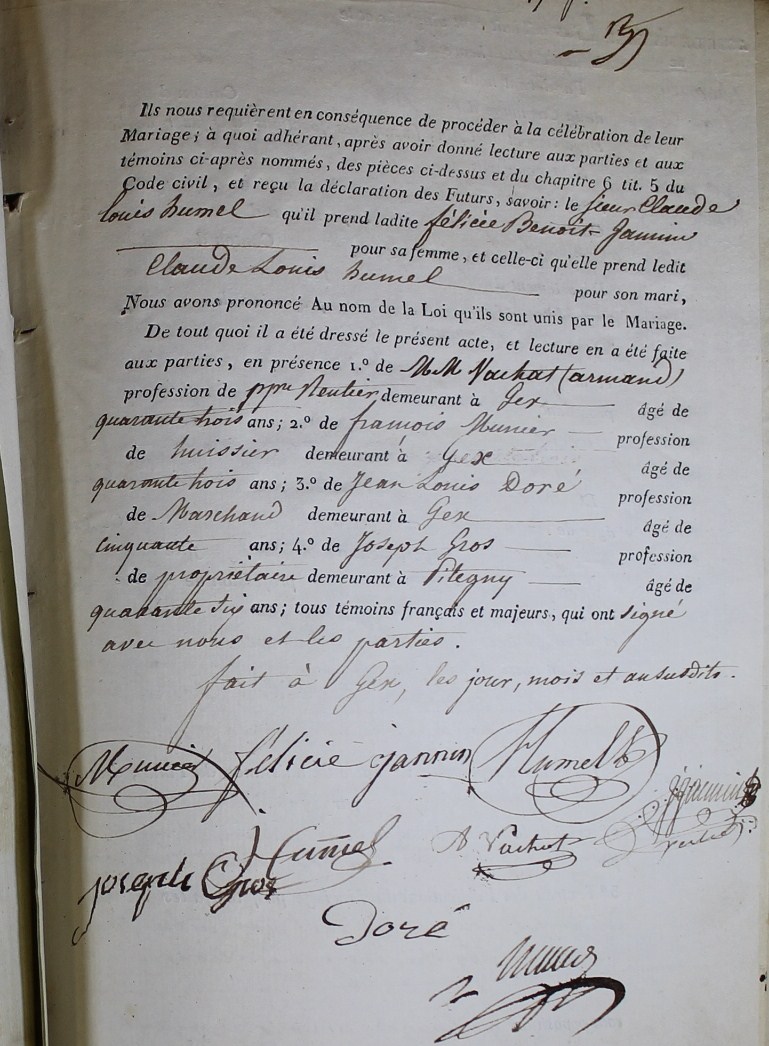 Ils nous requièrent en conséquence de procéder à la célébration de leur
Mariage ; à quoi adhérant, après avoir donné lecture aux parties et aux
témoins ci-après nommés, des pièces ci-dessus et du chapitre 6 tit. 5 du
Code civil, et reçu la déclaration des Futurs, savoir : le sieur Claude
Louis humel qu'il prend ladite félicie Benoit Jannin
pour sa femme, et celle-ci qu'elle prend ledit
Claude Louis humel pour son mari,
Nous avons prononcé Au nom de la Loi qu'ils sont unis par le Mariage.
De tout quoi il a été dressé le présent acte, et lecture en a été faite
aux parties, en présence 1.º de MM Vachat (armand)
profession de ppre Rentier demeurant à Gex âgé de
quarante trois ans ; 2.º de françois Munier profession
de huissier demeurant à Gex âgé de
quarante trois ans ; 3.º de Jean Louis Doré profession
de Marchand demeurant à Gex âgé de
cinquante ans ; 4.º de Joseph Gros profession
de propriétaire demeurant à Pitegny âgé de
quarante six ans ; tous témoins français et majeurs, qui ont signé
avec nous et les parties.
fait à Gex, les jour, mois et an susdits.
Munier félicie jannin Humel
joseph Gros Humel A Vachat
Doré